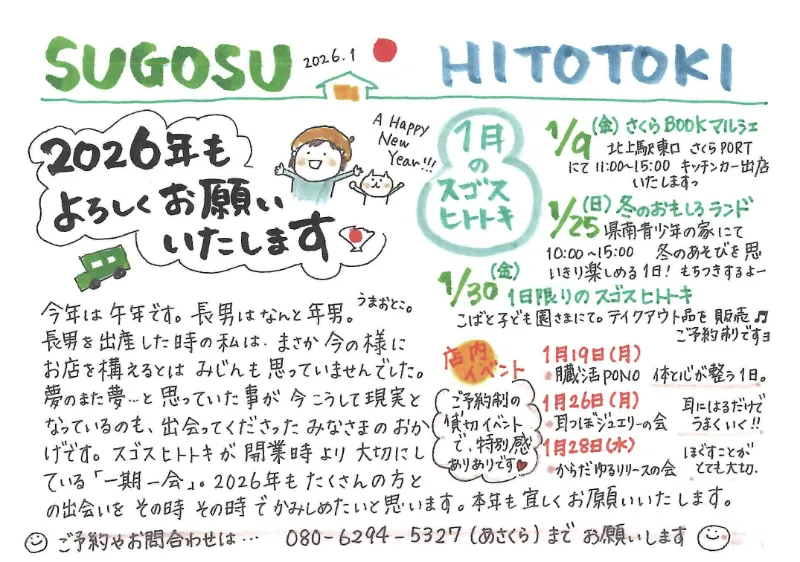 SUGOSU 2026.1 HITOTOKI
2026年も
よろしくお願い
いたします
A Happy
New
Year!!!
1月
の
スゴス
ヒトトキ
1/9 (金) さくらBOOKマルシェ
北上駅東口 さくらPORT
にて 11:00~15:00 キッチンカー出店
いたしますっ
1/25 (日) 冬のおもしろランド
県南青少年の家にて
10:00~15:00 冬のあそびを思
いきり楽しめる1日! もちつきするよー
1/30 (金) 1日限りのスゴスヒトトキ
こばと子ども園さまにて。テイクアウト品を販売♬
ご予約制ですョ
今年は午年です。長男はなんと年男。うまおとこ。
長男を出産した時の私は、まさか今の様に
お店を構えるとは みじんも思っていませんでした。
夢のまた夢…と思っていた事が 今こうして現実と
なっているのも、出会ってくださった みなさまのおか
げです。スゴスヒトトキが 開業時より大切にし
ている「一期一会」。2026年もたくさんの方と
の出会いを その時 その時でかみしめたいと思います。本年も宜しくお願いいたします。
店内
イベント
ご予約制の
貸切イベント
で、特別感
ありありです♥
1月19日(月)
・臓活PONO 体と心が整う1日。
1月26日(月)
・耳つぼジュエリーの会 耳にはるだけで
うまくいく!!
1月28日(水)
・からだゆるリリースの会 ほぐすことが
とても大切.
ご予約やお問合わせは… 080-6294-5327(あさくら)まで お願いします